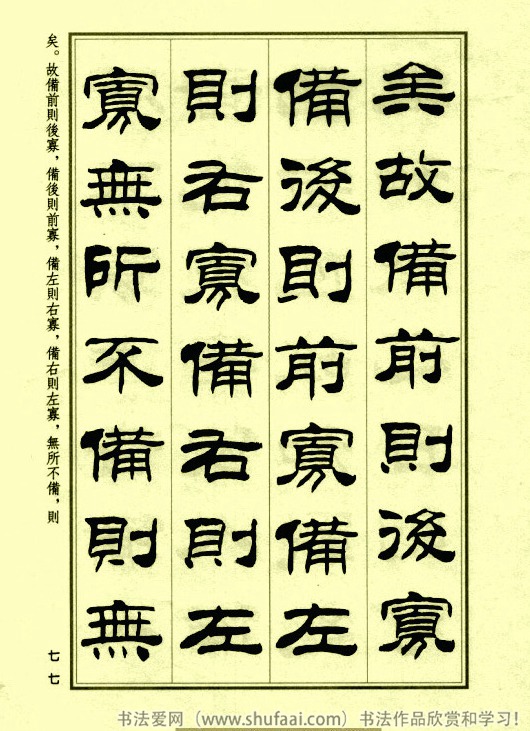 矣故備前則後寡
備後則前寡備左
則右寡備右則左
寡無所不備則無
矣。故備前則後寡，備後則前寡，備左則右寡，備右則左寡，無所不備，則
七七
书法爱网（www.shufaai.com）书法作品欣赏和学习！